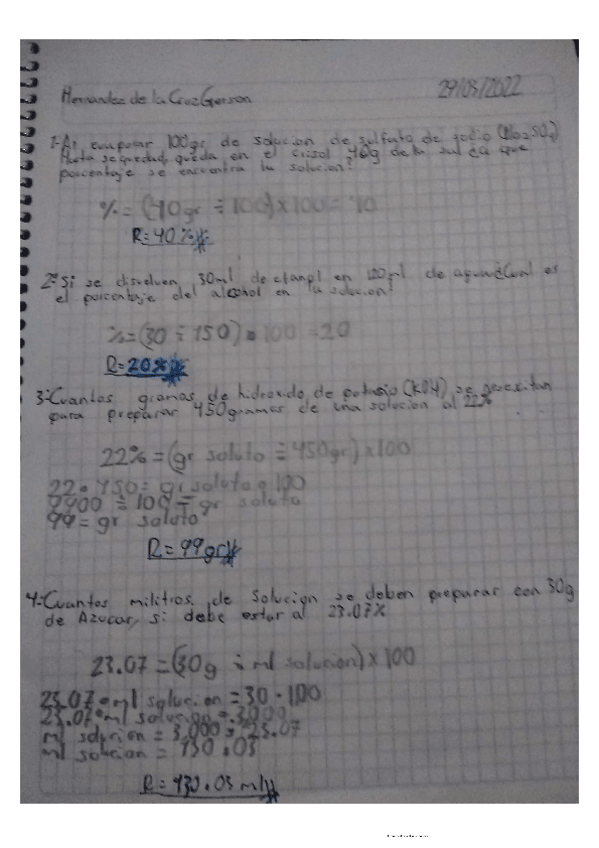 Hernandez de la Cruz Gerson 29/03/2022
1-Al evaporar 100gr de solucion de sulfato de sodio (Na2SO4)
Hasta sequedad, queda en el crisol 40g de la sal ¿a que
porcentaje se encuentra la solucion?
%= (40gr ÷ 100) x 100 = 40
R=40%
2-Si se disuelven 30ml de etanol en 120ml de agua ¿Cual es
el porcentaje del alcohol en la solucion?
%=(30 ÷ 150) • 100 = 20
R=20%
3-Cuantos gramos de hidroxido de potasio (KOH) se
para preparar 450gramos de una solucion al 22%
22% = (gr soluto ÷ 450gr) x 100
22 • 450 = gr soluto • 100
9900 ÷ 100 = gr soluto
99 = gr soluto
R= 99gr
4-Cuantos de solucion se deben preparar con 30g
de Azucar, si debe estar al 23.07%
23.07 = (30g ÷ ml solucion) x 100
23.07 • ml solucion = 30 • 100
23.07 • ml solucion = 3000
ml solucion = 3,000 ÷ 23.07
ml solucion = 130.03
R= 130.03 ml